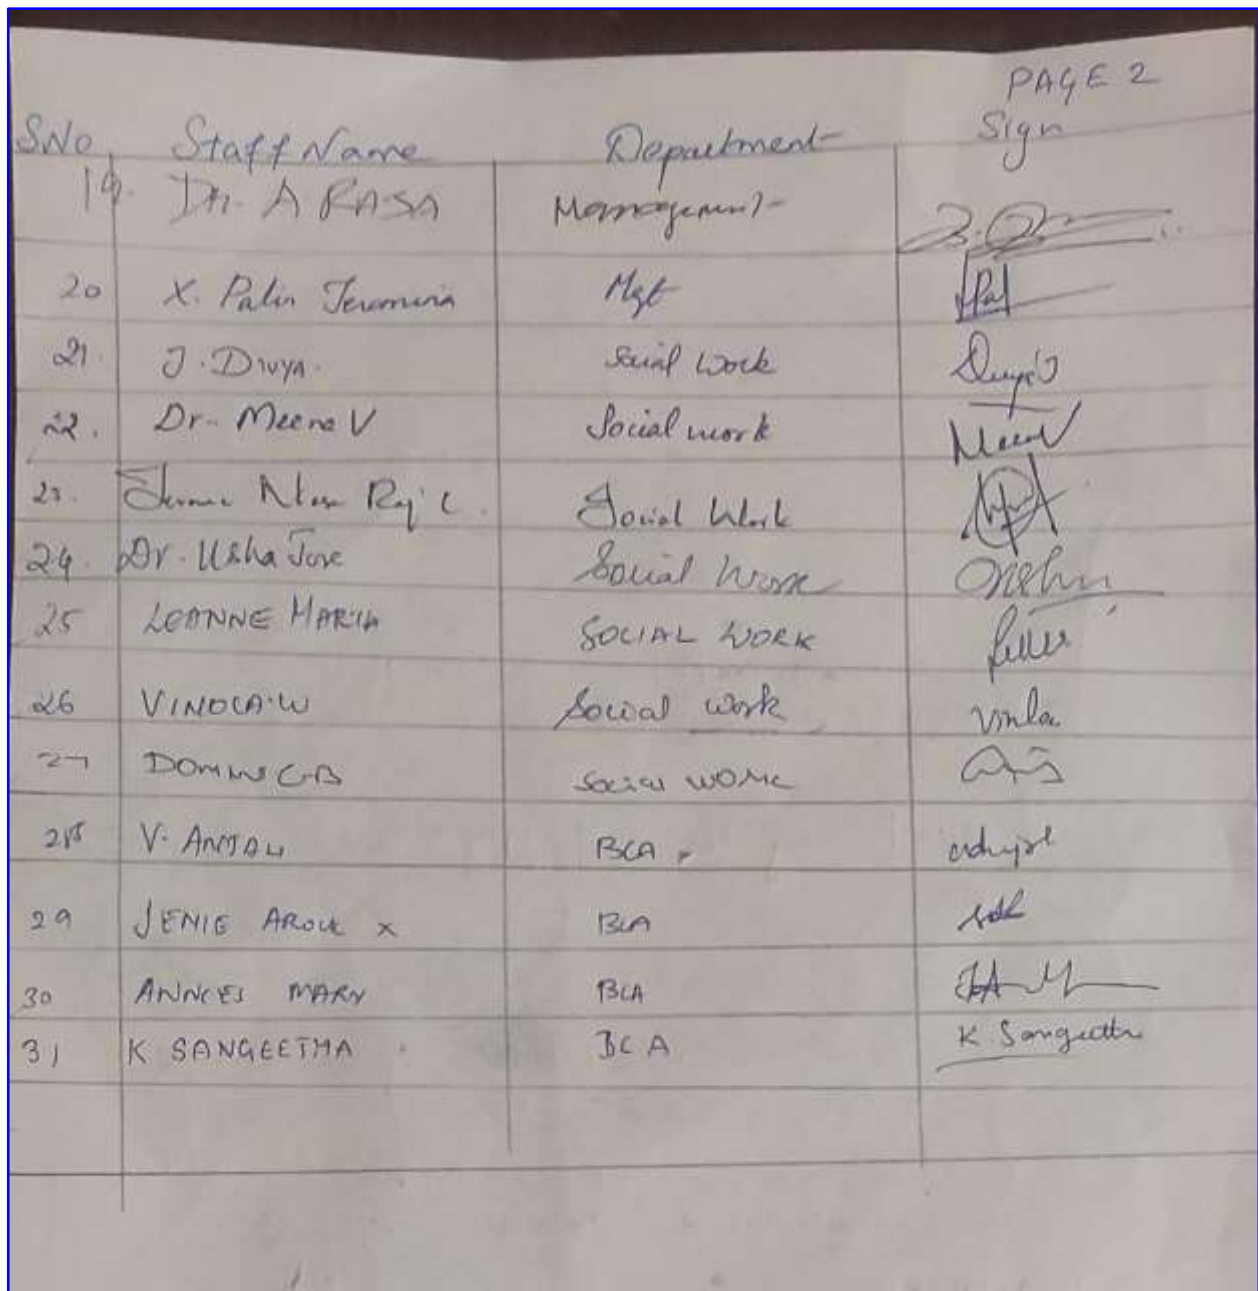 PAGE 2
SNo Staff Name Department Sign
19. Dr. A RASA Management
20 X. Palin Management Mgt
21. J. Divya. Social Work Divya J
22. Dr. Meena V Social work Meena V
23. Raj C. Social Work
24. Dr. Usha Jose Social Work
25 LEANNE MARIA SOCIAL WORK
26 VINOLA.W Social work Vinola
27 DOMINIC.B Social WORK
28 V. ANJALI BCA
29 JENIE AROUL X BCA
30 MARY BCA
31 K SANGEETHA BCA K Sangeetha